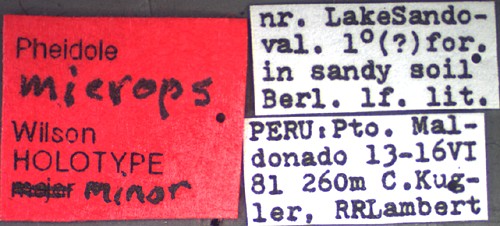 Pheidole
microps
Wilson
HOLOTYPE
major minor
nr. LakeSando-
val. 1°(?)for.
in sandy soil
Berl. lf. lit.
PERU:Pto. Mal-
donado 13-16VI
81 260m C.Kug-
ler, RRLambert